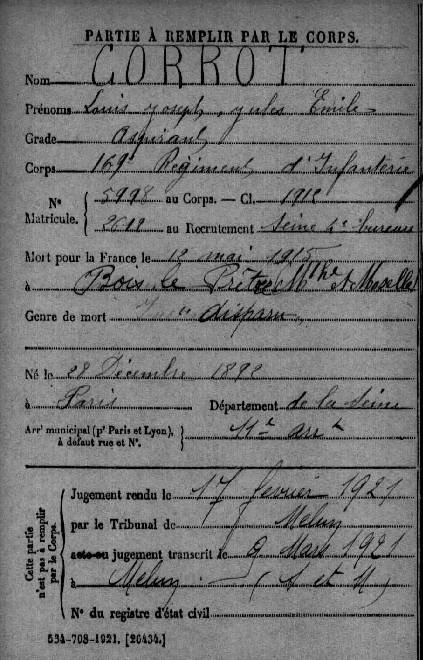 PARTIE À REMPLIR PAR LE CORPS.
Nom CORROT
Prénoms Louis Joseph, Jules Emile
Grade Aspirant
Corps 169e Régiment d'Infanterie
N° Matricule. 5998 au Corps. — Cl. 1912
2612 au Recrutement Seine 4e bureau
Mort pour la France le 12 mai 1915
à Bois le Prêtre Mthe et Moselle
Genre de mort disparu
Né le 28 Décembre 1892
à Paris Département de la Seine
Arrt municipal (pr Paris et Lyon), à défaut rue et N°. 11e arrt
Cette partie n'est pas à remplir par le Corps.
Jugement rendu le 17 février 1921
par le Tribunal de Melun
acte ou jugement transcrit le 9 Mars 1921
à Melun (S et M)
N° du registre d'état civil
534-708-1921. [26434.]